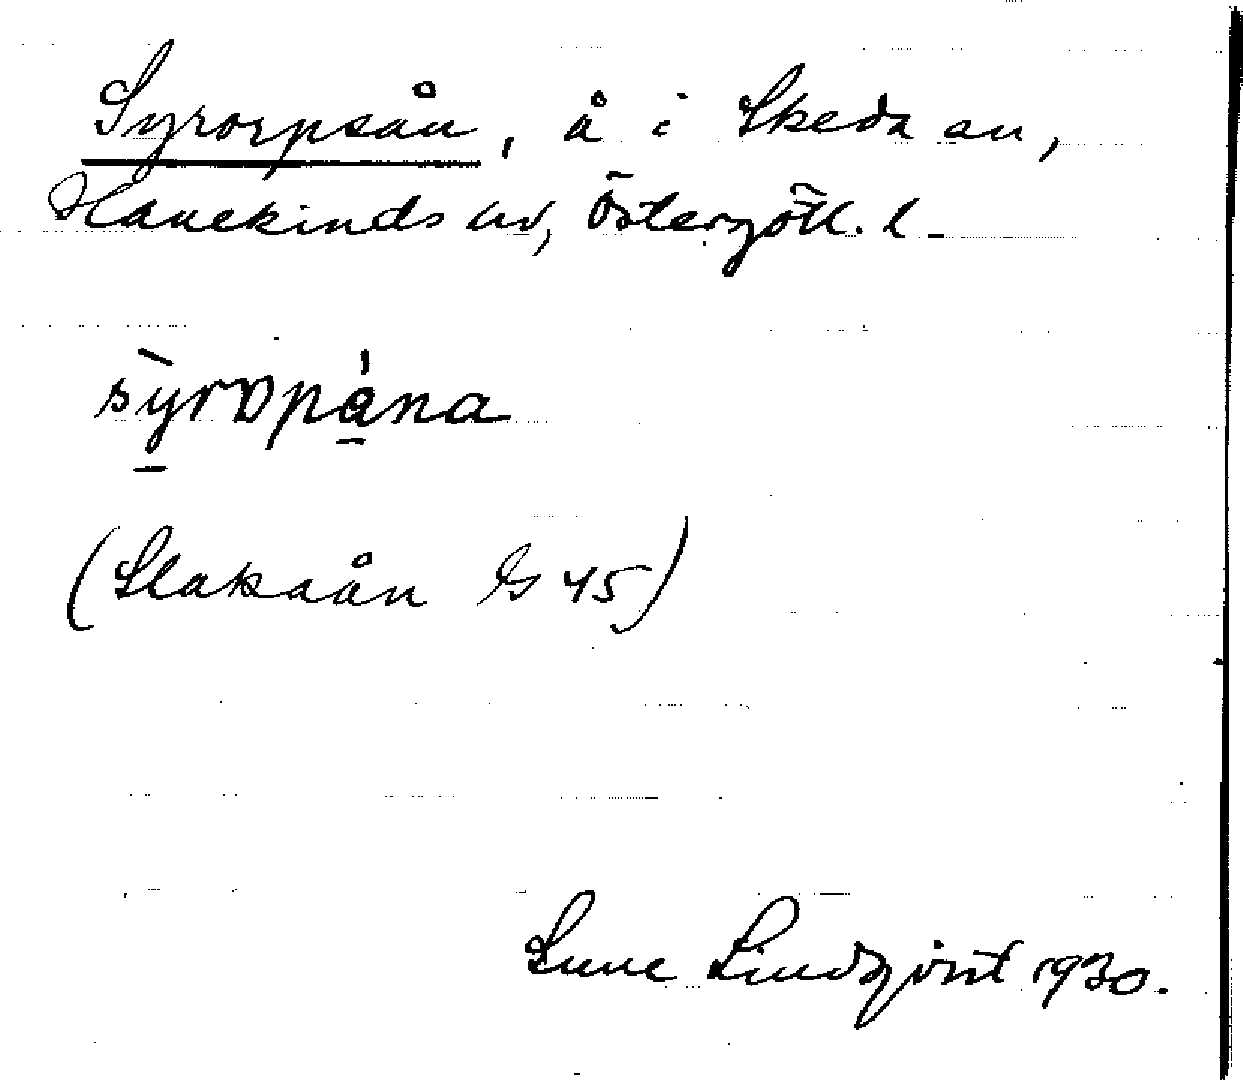 Syrorpsån, å i Skeda sn,
Hanekinds hd, Östergötl. l.
syropåna
(Slakaån G 45)
Sune Lindqvist 1930.